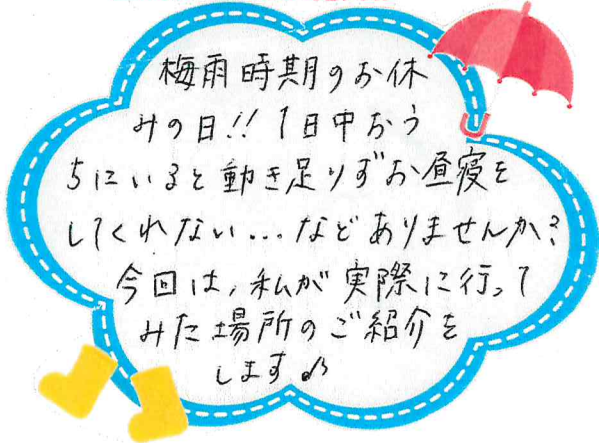 梅雨時期のお休
みの日!! 1日中おう
ちにいると動き足りずお昼寝を
してくれない...などありませんか?
今回は、私が実際に行って
みた場所のご紹介を
します♪